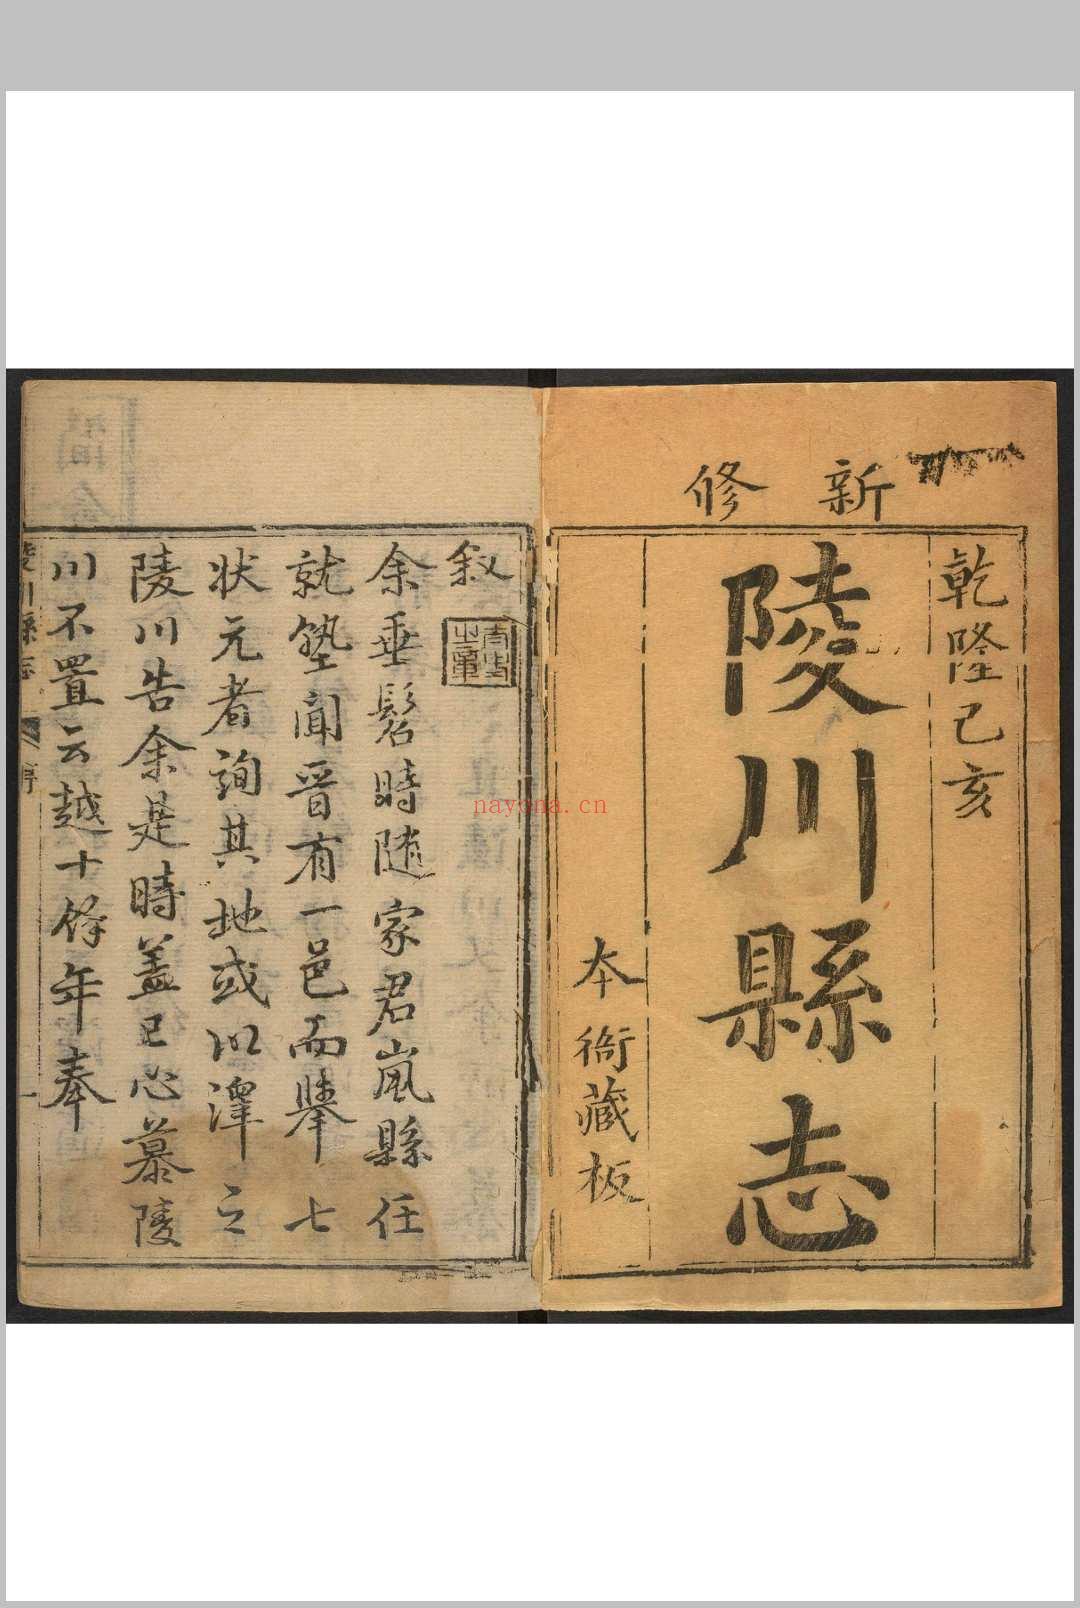 新修
乾隆己亥
陵川縣志
本衙藏板
叙
余垂髫時随家君嵐縣任
就塾聞晉有一邑而舉七
状元者詢其地或以澤之
陵川告余是時盖已心慕陵
川不置云越十餘年奉
陵川縣志
序
一
nayona.cn